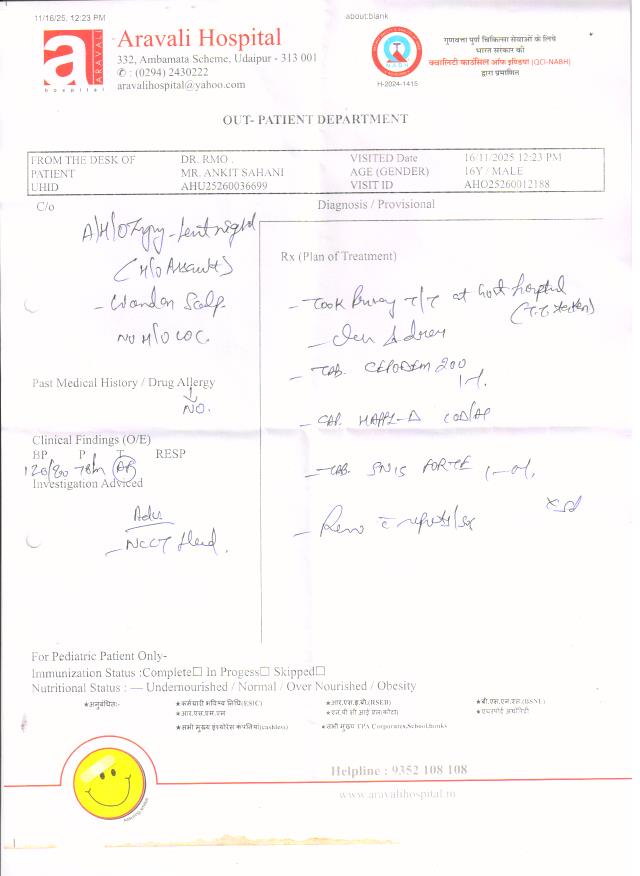 11/16/25, 12:23 PM
about:blank
a
ARAVALI
hospital
Aravali Hospital
332, Ambamata Scheme, Udaipur - 313 001
: (0294) 2430222
aravalihospital@yahoo.com
NABH
H-2024-1415
गुणवत्ता पूर्ण चिकित्सा सेवाओं के लिये
भारत सरकार की
क्वालिटी काउंसिल ऑफ इण्डिया (QCI-NABH)
द्वारा प्रमाणित
OUT- PATIENT DEPARTMENT
FROM THE DESK OF DR. RMO . VISITED Date 16/11/2025 12:23 PM
PATIENT MR. ANKIT SAHANI AGE (GENDER) 16Y / MALE
UHID AHU25260036699 VISIT ID AHO25260012188
C/o
Diagnosis / Provisional
A/H/O - last night
(H/O Assault)
- Scalp
NO H/O LOC.
Rx (Plan of Treatment)
- Took Primary T/T at Govt hospital
-
- TAB. 200
- CAP. -D
- TAB. FORTE
- Review c reports
Past Medical History / Drug Allergy
NO.
Clinical Findings (O/E)
BP P T RESP
120/80 78m
Investigation Adviced
Adv.
- NCCT Head.
For Pediatric Patient Only-
Immunization Status :Complete☐ In Progess☐ Skipped☐
Nutritional Status : — Undernourished / Normal / Over Nourished / Obesity
★अनुबंधितः- ★कर्मचारी भविष्य निधि(ESIC) ★आर.एस.ई.बी(RSEB) ★बी.एस.एन.एल(BSNL)
★आर.एस.एम.एम ★एन.पी सी आई एल(कोटा) ★एयरपोर्ट अथॉरिटी
★सभी मुख्य इंश्योरेंस कंपनियां(cashless) ★सभी मुख्य TPA Corporates,School,banks
Helpline : 9352 108 108
www.aravalihospital.in